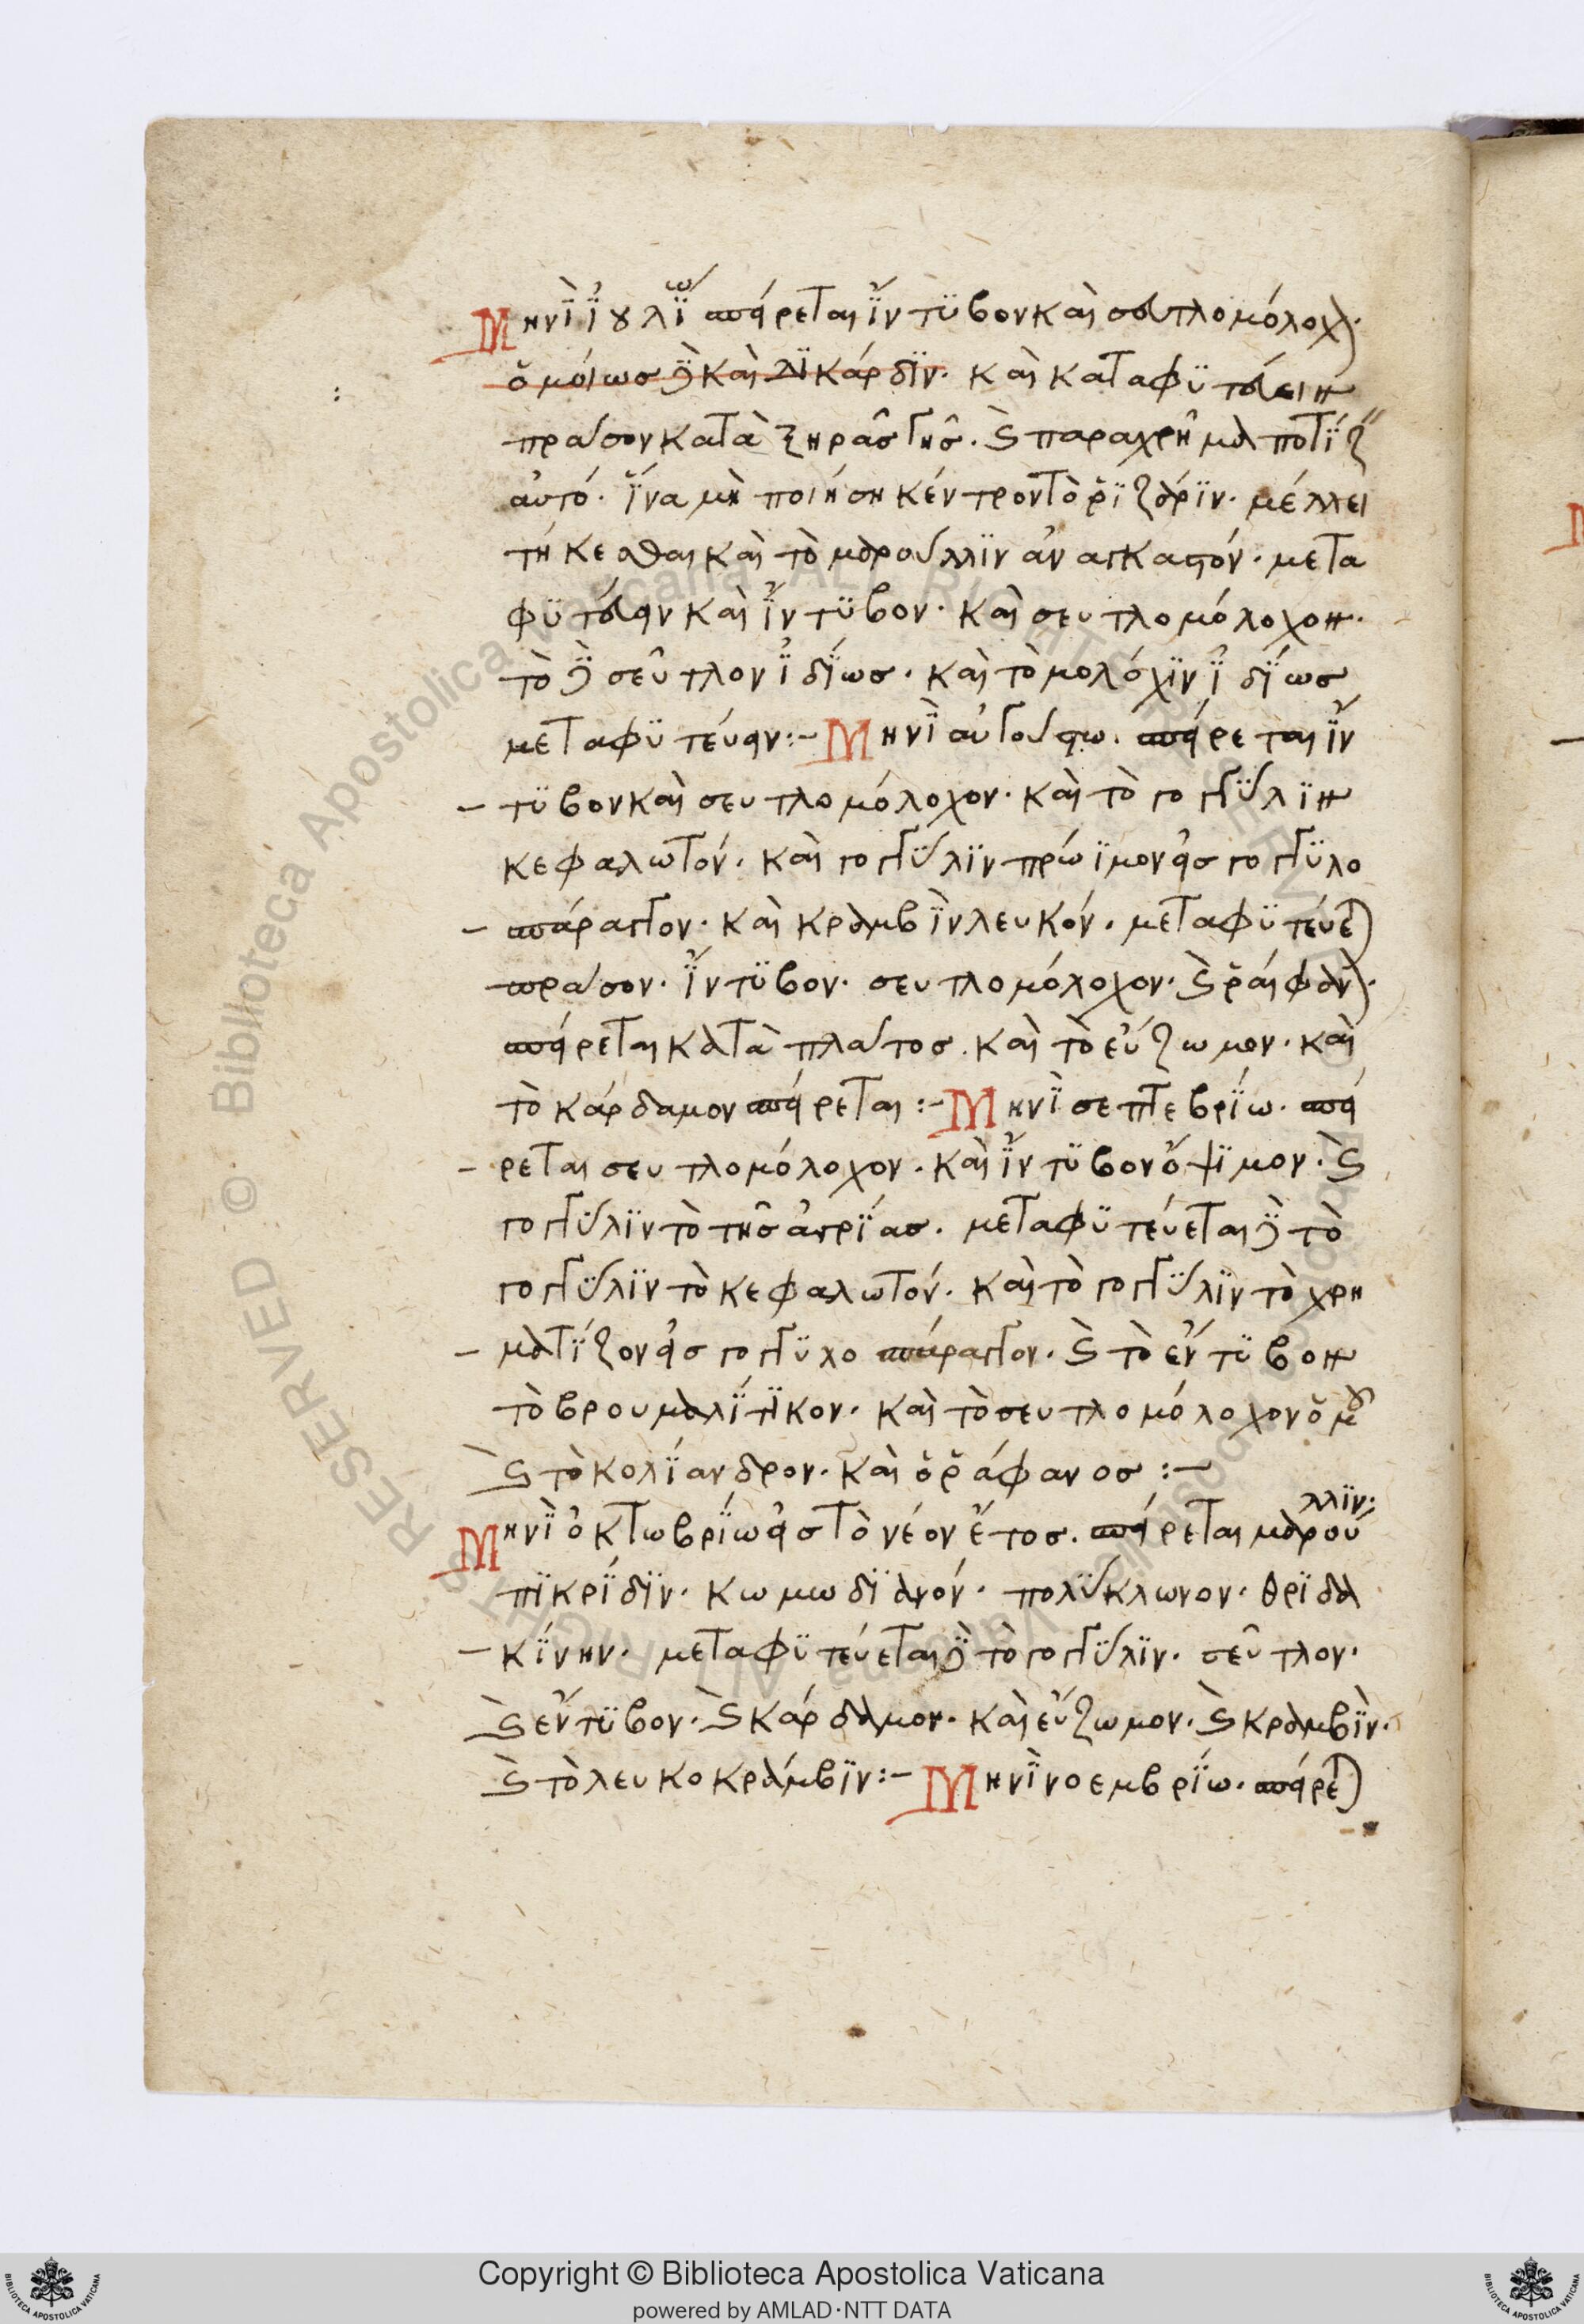 Μηνῒ ἰουλίω σπείρεται ἴντϋβον καὶ σευτλομόλοχον.
ὁμοίως δὲ καὶ κάρδϊν. καὶ καταφϋτεύειν
πράσον κατὰ ξηρᾶς γῆς. καὶ παραχρῆμα ποτίζ
αὐτό. ἵνα μὴ ποιήση κέντρον τὸ ῥϊζάρϊν. μέλλει
τήκεσθαι καὶ τὸ μαρούλλϊν ἀναγκαστόν. μετα
φϋτεύειν καὶ ἴντϋβον. καὶ σευτλομόλοχον.
τὸ δὲ σεῦτλον ἰδίως. καὶ τὸ μολόχϊν ἰδίως
μεταφϋτεύειν:- Μηνῒ αὐγούστω. σπείρεται ἴν
τϋβον καὶ σευτλομόλοχον. καὶ τὸ γογγύλϊν
κεφαλωτόν. καὶ γογγύλϊν πρώϊμον εἰς γογγϋλο
σπάραγγον. καὶ κραμβὶν λευκόν. μεταφϋτεύεται
πράσον. ἴντϋβον. σευτλομόλοχον. καὶ ῥάφαν
σπείρεται κατὰ πλάτος. καὶ τὸ εὔζωμον. καὶ
τὸ κάρδαμον σπείρεται:- Μηνῒ σεπτεβρίω. σπεί
ρεται σευτλομόλοχον. καὶ ἴντϋβον ὄψϊμον. καὶ
γογγύλϊν τὸ τῆς ἀγρίας. μεταφϋτεύεται δὲ τὸ
γογγύλϊν τὸ κεφαλωτόν. καὶ τὸ γογγύλϊν τὸ χρη
ματίζον εἰς γογγϋλοσπάραγγον. καὶ τὸ ἔντϋβον
τὸ βρουμαλίτϊκον. καὶ τὸ σευτλομόλοχον ὁμ
καὶ τὸ κολίανδρον. καὶ ὁ ῥάφανος:-
Μηνῒ ὀκτωβρίω εἰς τὸ νέον ἔτος. σπείρεται μαρούλλϊν:
πϊκρίδϊν. κωμωδϊανόν. πολύκλωνον. θρϊδα
κίνην. μεταφϋτεύεται δὲ τὸ γογγύλϊν. σεῦτλον.
καὶ ἔντϋβον. καὶ κάρδαμον. καὶ εὔζωμον. καὶ κραμβὶν.
καὶ τὸ λευκοκράμβϊν:- Μηνῒ νοεμβρίω. σπείρεται
Copyright © Biblioteca Apostolica Vaticana
powered by AMLAD·NTT DATA